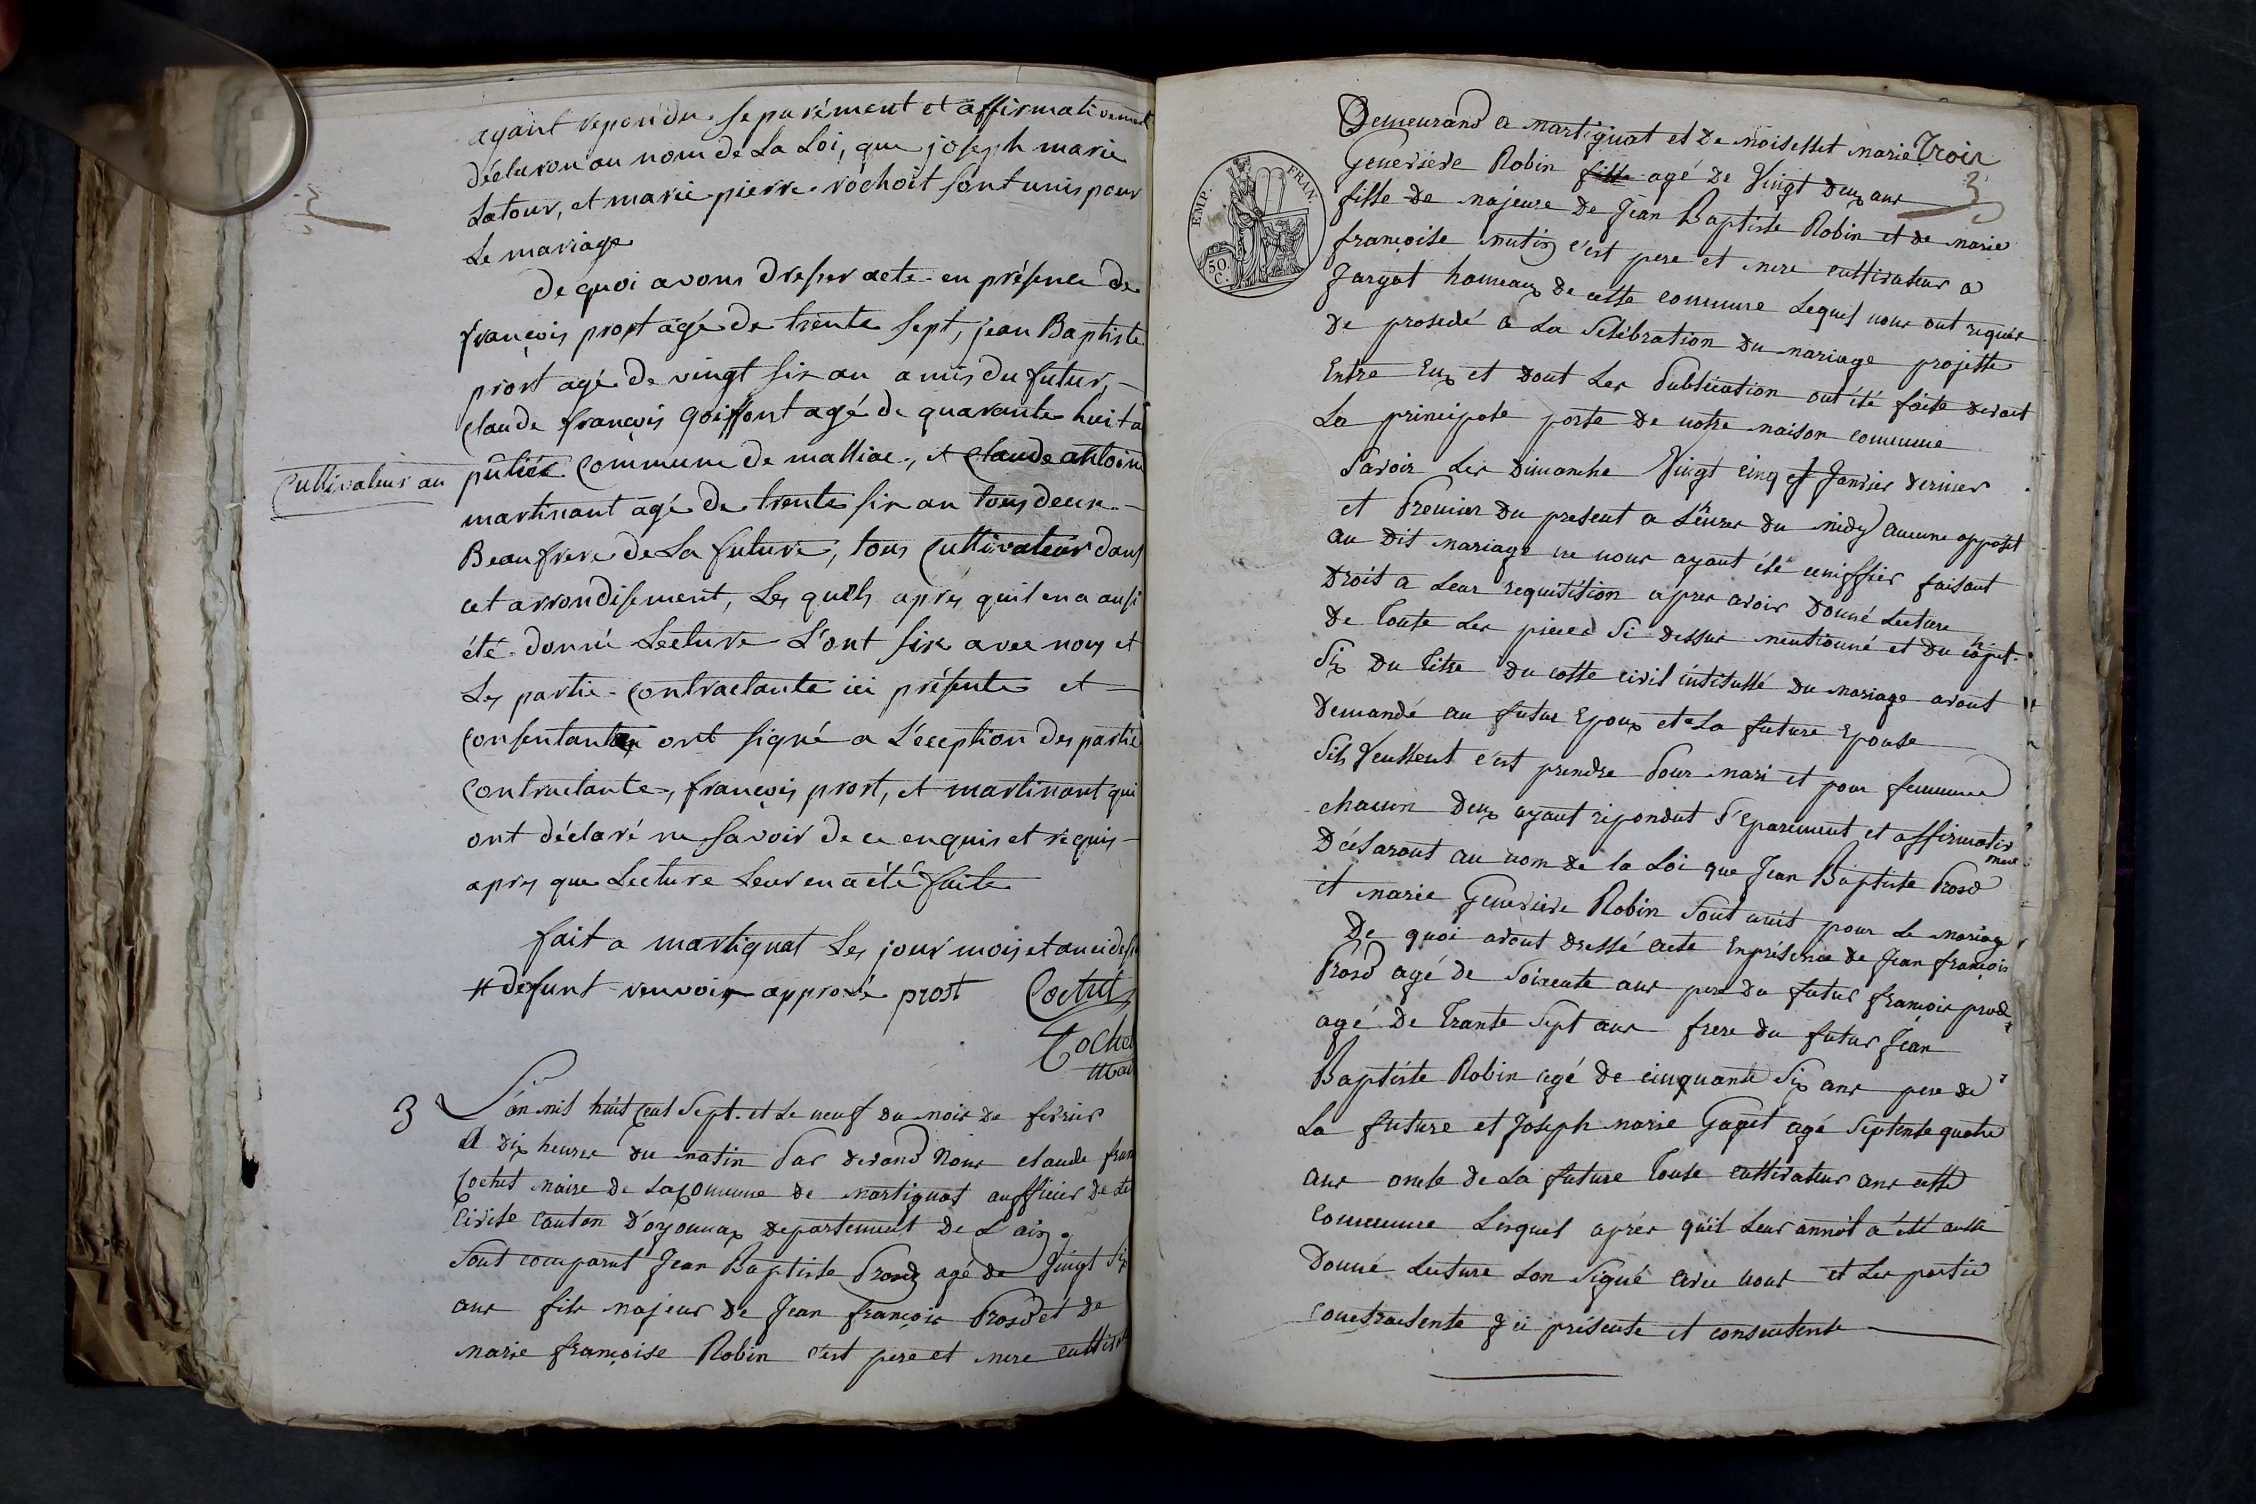 ayant repondu séparément et affirmativement
déclaron au nom de La Loi, que joseph marie
Latour, et marie pierre rochoit sont unis pour
Le mariage
De quoi avons dresser acte en présence de
françois prost agé de trente sept, jean Baptiste
prost agé de vingt six an amis du futur,
claude françois goiffont agé de quarante huit a
cultivateur au
putier commune de malliac, et claude antoine
martinant agé de trente six an tous deux
Beaufrere de La future, tous cultivateur dans
cet arrondisement, Les quels après quil en a ausi
été donné Lecture L'ont sine avec nous et
Les partie contractante ici présente et
consentante ont signé a L'exception des partie
contractante, françois prost, et martinant qui
ont déclaré ne savoir de ce enquis et requis
après que Lecture Leur en a été faite
fait a martignat Les jour mois et an ci des
# défunt renvoir apprové prost Cochet
Cochet
mai
3 L'an mil huit cent sept et Le neuf du mois de fevrier
A dix heures du matin Par devand Nous claude fran
Cochet maire de La comune de martignat aufficier de de
Civile canton D'oyonnax departement de L'ain
Sont comparut Jean Baptiste Prost agé de Vingt Six
ans fils majeur de Jean françois Prosd et de
marie françoise Robin c'est pere et mere cultivat
Demeurand a martignat et De moisesset marie Trois
Geneviève Robin fille agé de Vingt deux ans 3
EMP. FRAN.
50. C.
fille de majeure de Jean Baptiste Robin et de marie
françoise mutin c'est pere et mere cultivateur a
Jargat hameaux de cette commune Lequel nous ont requis
de prosedé a La Selébration du mariage projette
Entre Eux et dont Les Publication ont été faite devant
La principale porte de notre maison commune
Savoir Les Dimanche Vingt cinq et Janvier dernier
et Premier du present a L'heures du midy aucune opposit
au dit mariage ne nous ayant été cenissier faisant
Droit a Leur requisition après avoir Donné Lecture
De toute Les pieces Si dessus mentionné et du chapit.
Six du Titre du codte civil intitullé du mariage avont
Demandé au futur Epoux et a La future Epouse
Sils Veullent c'est prendre Pour mari et pour femme
chacun deux ayant repondut S'eparement et affirmativ
ment
Déclaront au nom de la Loi que Jean Baptiste Prosd
et marie Geneviève Robin Sont unit pour Le mariage
De quoi avont dressé acte Enprésence de Jean françois
Prosd agé de Soixente ans pere du futur françois prosd
agé de Trante Sept ans frere du futur Jean
Baptiste Robin agé de cinquante Six ans pere de
La future et Joseph marie Gaget agé Septente quatre
ans oncle de La future Touse cultivateur ans cette
Commune Lesquel après quil Leur annot a été ausse
Donné Lecture Lon Signé avec nous et Les partie
contractente Jci présente et consentente